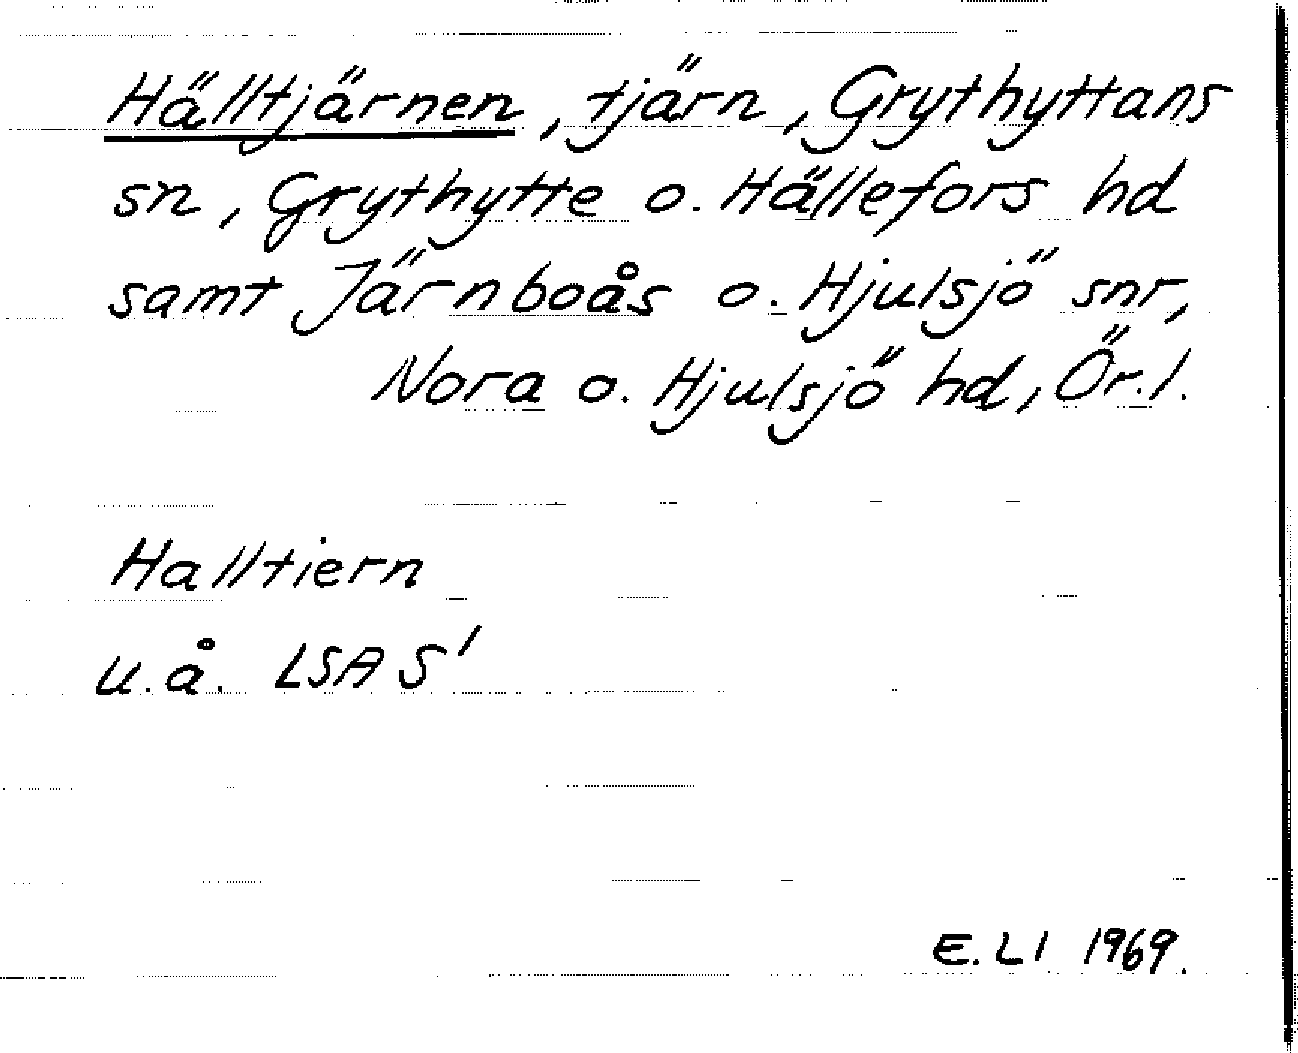 Hälltjärnen, tjärn, Grythyttans
sn, Grythytte o. Hällefors hd
samt Järnboås o. Hjulsjö snr,
Nora o. Hjulsjö hd, Ör.l.
Halltiern
u.å. LSA S'
E. LI 1969.